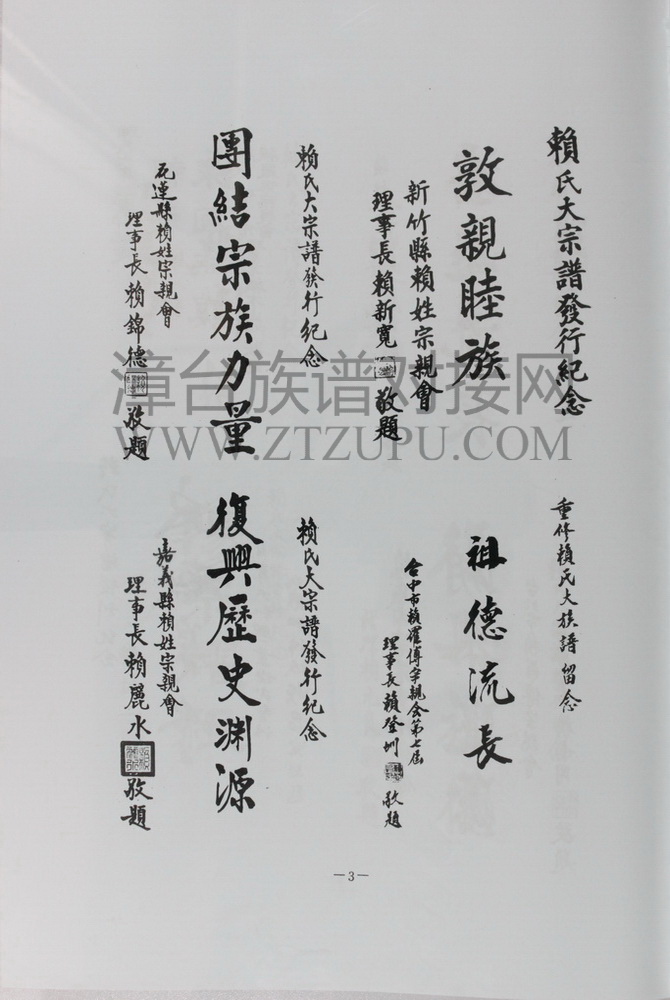 賴氏大宗譜發行紀念
敦親睦族
新竹縣賴姓宗親會
理事長賴新寬 敬題
賴氏大宗譜發行紀念
團結宗族力量
花蓮縣賴姓宗親會
理事長賴錦德 敬題
重修賴氏大族譜留念
祖德流長
台中市賴羅傅宗親会第七屆
理事長賴登圳 敬題
賴氏大宗譜發行紀念
復興歷史淵源
嘉義縣賴姓宗親會
理事長賴麗水 敬題
漳台族谱对接网
WWW.ZTZUPU.COM
—3—